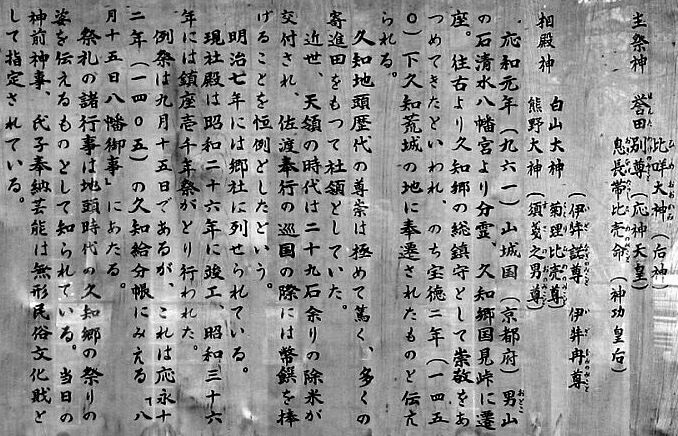 主祭神　誉田別尊（応神天皇）
比咩大神（后神）
息長帯比売命（神功皇后）
相殿神　白山大神（伊弉諾尊　伊弉冉尊　菊理比売尊）
熊野大神（須美之男尊）
応和元年（九六一）山城国（京都府）男山
の石清水八幡宮より分霊、久知郷国見峠に遷
座。往古より久知郷の総鎮守として崇敬をあ
つめてきたといわれ、のち宝徳二年（一四五
〇）下久知荒城の地に奉遷されたものと伝え
られる。
久知地頭歴代の尊崇は極めて篤く、多くの
寄進田をもつて社領としていた。
近世、天領の時代は二十九石余りの除米が
交付され、佐渡奉行の巡国の際には幣饌を捧
げることを恒例としたという。
明治七年には郷社に列せられている。
現社殿は昭和二十六年に竣工、昭和三十六
年には鎮座壱千年祭がとり行われた。
例祭は九月十五日であるが、これは応永十
二年（一四〇五）の久知給分帳にみえる「八
月十五日八幡御事」にあたる。
祭礼の諸行事は地頭時代の久知郷の祭りの
姿を伝えるものとして知られている。当日の
神前神事、氏子奉納芸能は無形民俗文化財と
して指定されている。